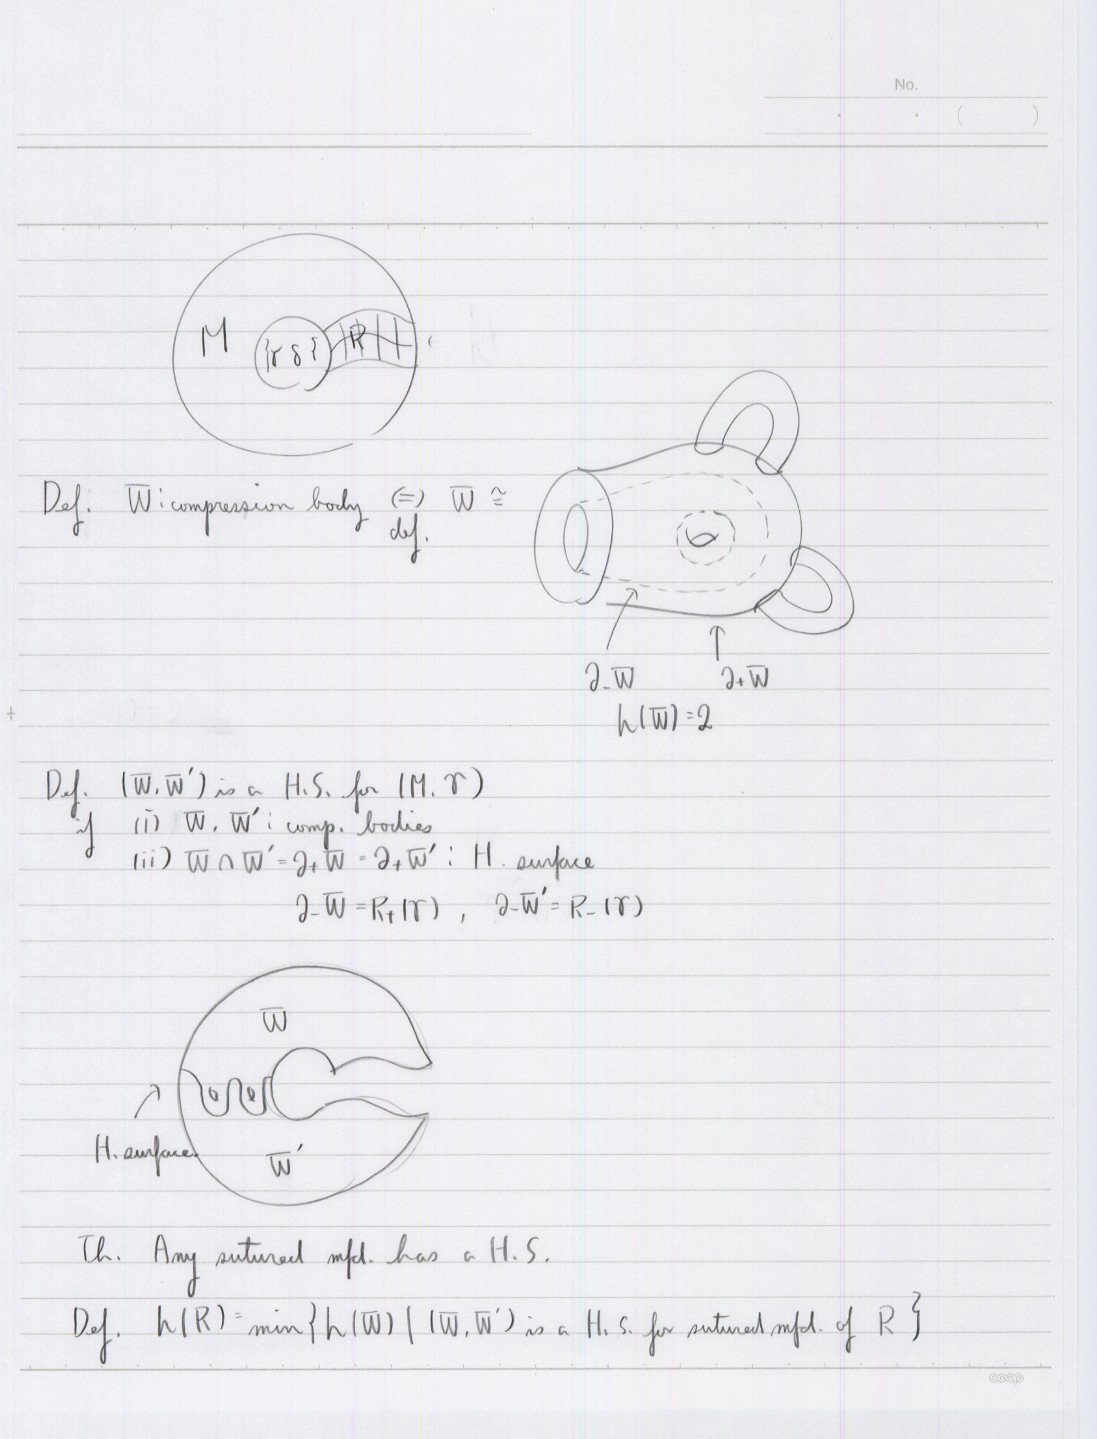 No.
( )
M
R
Def. W̅ : compression body ⇔ W̅ ≅
def.
∂₋W̅
∂₊W̅
h(W̅) = 2
Def. (W̅, W̅′) is a H.S. for (M, γ)
if (i) W̅, W̅′ : comp. bodies
(ii) W̅ ∩ W̅′ = ∂₊W̅ = ∂₊W̅′ : H. surface
∂₋W̅ = R₊(γ) , ∂₋W̅′ = R₋(γ)
W̅
H. surface
W̅′
Th. Any sutured mfd. has a H.S.
Def. h(R) = min{h(W̅) | (W̅, W̅′) is a H.S. for sutured mfd. of R}
coop